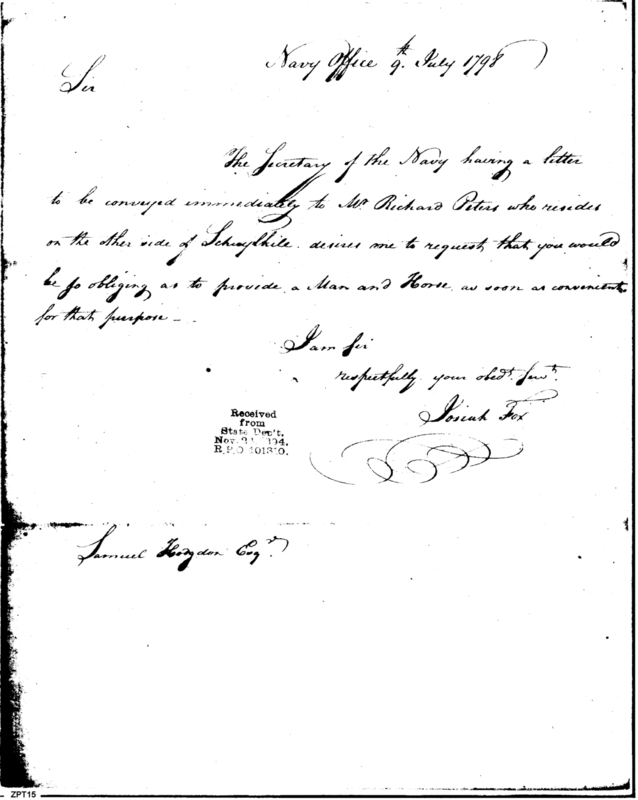 Navy Office 9th. July 1798
Sir
The Secretary of the Navy having a letter
to be conveyed immediately to Mr Richard Peters who resides
on the other side of Schuylkile. desires me to request that you would
be so obliging as to provide a Man and Horse, as soon as convenient
for that purpose —
I am Sir
respectfully your obedt. Servt.
Josiah Fox
Received
from
State Dep't.
R.P.O
Samuel Hodgdon Esqr
ZPT15